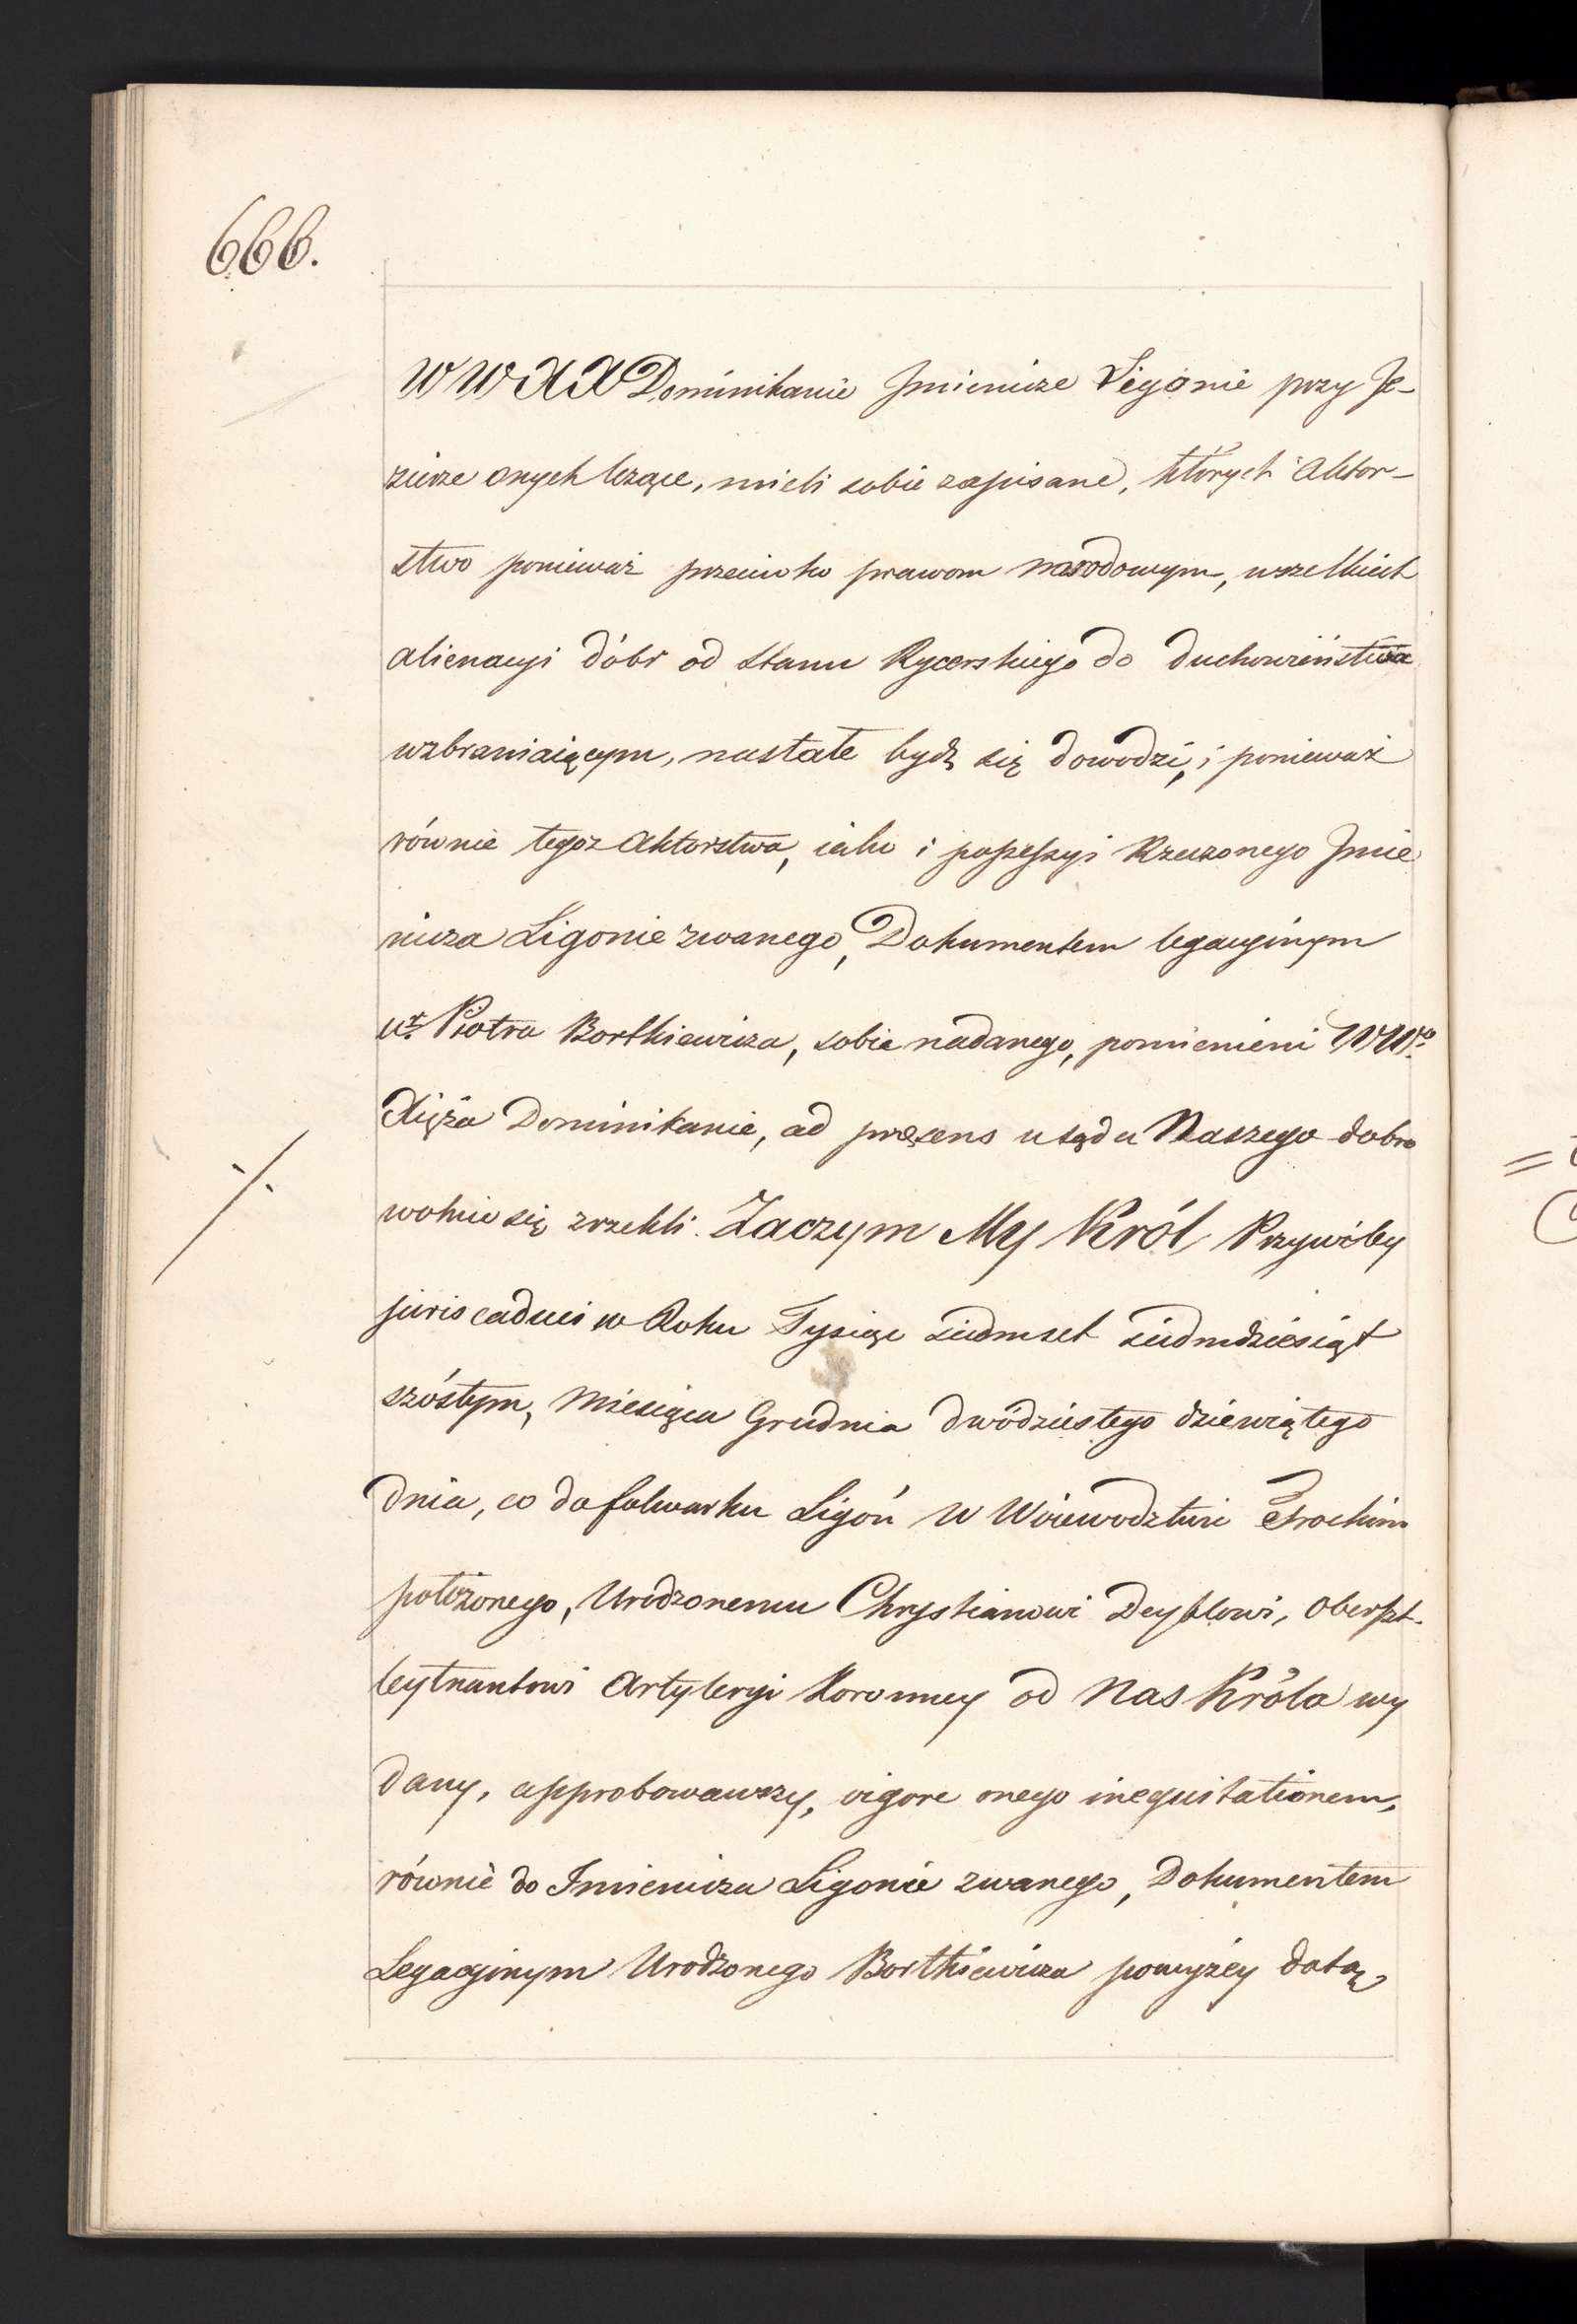 666.
WWXX Dominikanie Jmienicze Ligonie przy Je-
zierze onych leżące, mieli sobie zapisane, których Aktor-
stwo ponieważ przeciwko prawom narodowym, wszelkich
alienacyi dóbr od stanu Rycerskiego do duchowieństwa
wzbraniaiącym, nastałe bydź się dowodzi, i ponieważ
równie tegoż Aktorstwa, iako i possessyi Rzeczonego Jmie
nicza Ligonie zwanego, Dokumentem legacyinym
ur. Piotra Bortkiewicza, sobie nadanego, pomienieni WW.
Xięża Dominikanie, ad præsens u sądu Naszego dobro
wolnie się zrzekli. Zaczym My Król Przywiley
juris caduci w Roku Tysiąc siedmset siedmdziesiąt
szóstym, Miesiąca Grudnia dwódziestego dziewiątego
dnia, co do folwarku Ligoń w Woiewodztwie Trockim
położonego, Urodzonemu Chrystianowi Deyblowi, Oberszt-
leytnantowi Artyleryi Koronney od Nas Króla wy
dany, approbowawszy, vigore onego inequitationem,
równie do Jmienicza Ligonie zwanego, Dokumentem
Legacyinym Urodzonego Bortkiewicza powyżey datą